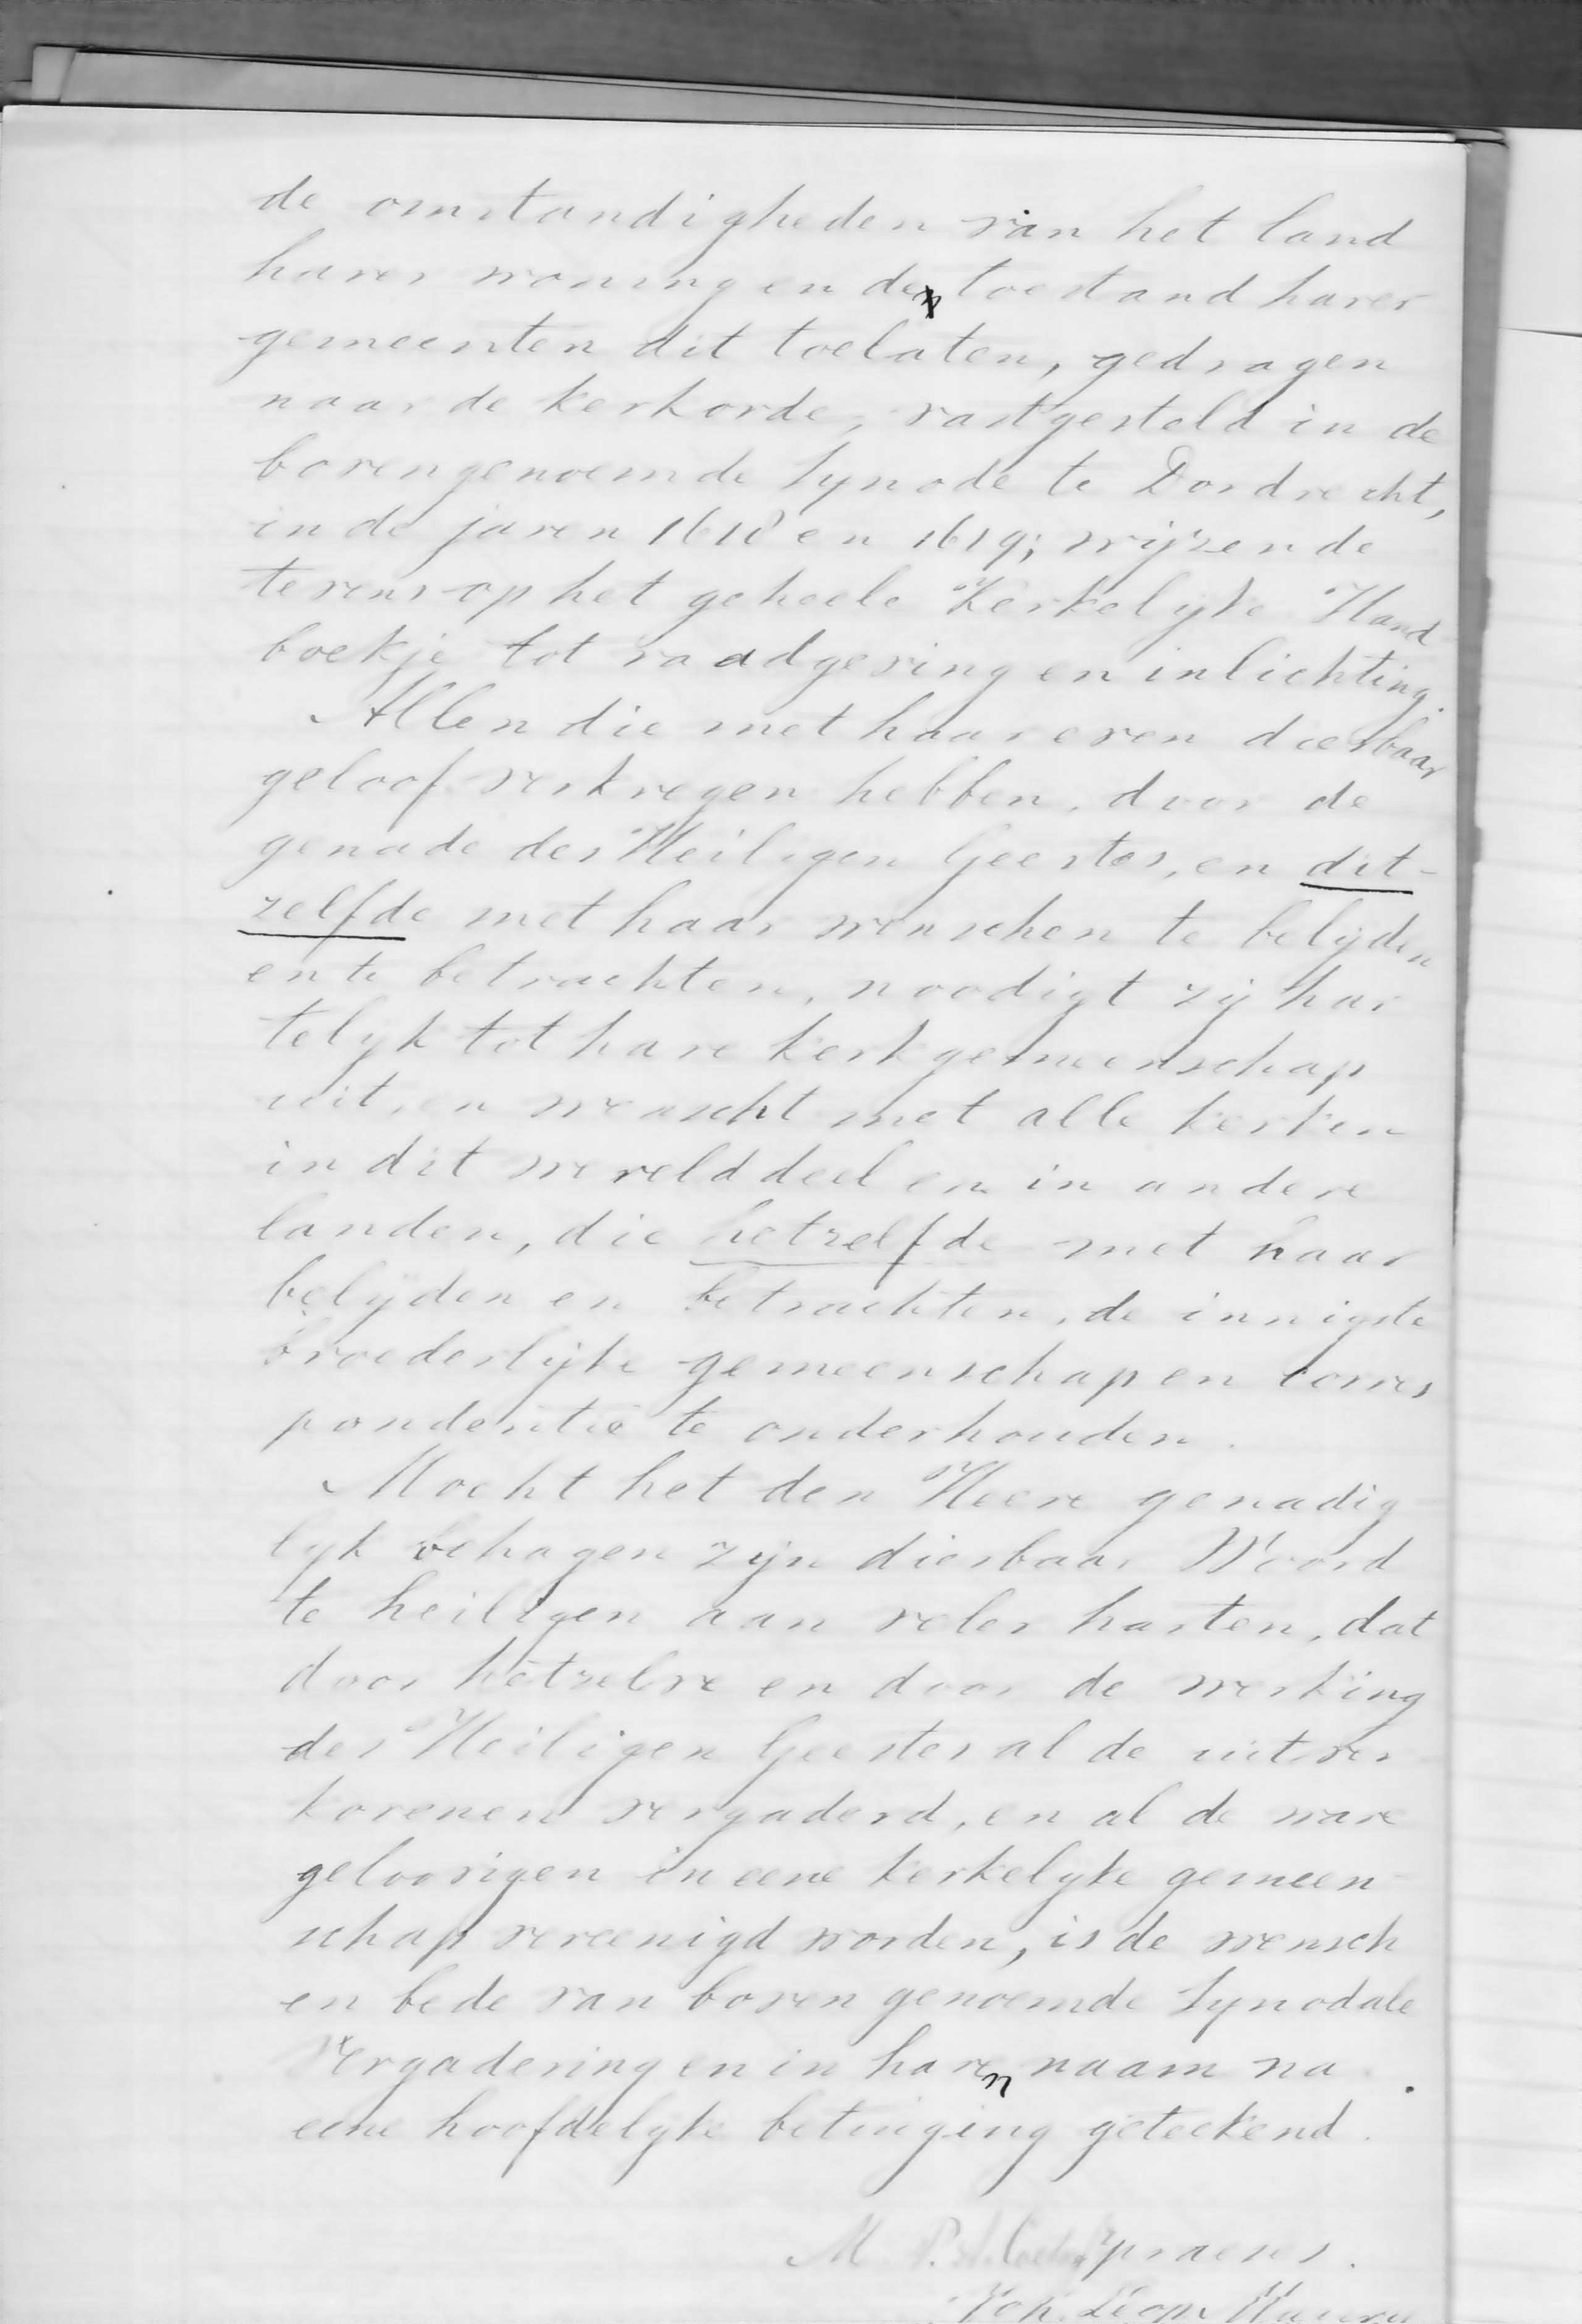 de omstandigheden van het land
harer woning en de toestand harer
gemeenten dit toelaten, gedragen
naar de kerkorde, vastgesteld in de
bovengenoemde Synode te Dordrecht,
in de jaren 1618 en 1619; wijzende
tevens op het geheele Kerkelyke Hand
boekje tot raadgeving en inlichting.
Allen die met haar even dierbaar
geloof verkregen hebben, door de
genade des Heiligen Geestes, en dit-
zelfde met haar wenschen te belijden
en te betrachten, noodigt zij har
telyk tot hare kerkgemeenschap
uit, en wenscht met alle kerken
in dit werelddeel en in andere
landen, die hetzelfde met haar
belijden en betrachten, de innigste
broederlijke gemeenschap en corres
pondentie te onderhouden.
Mocht het den Heere genadig-
lyk behagen zijn dierbaar Woord
te heiligen aan veler harten, dat
door hetzelve en door de werking
des Heiligen Geestes al de uitver-
korenen vergaderd, en al de ware
geloovigen in eene kerkelyke gemeen-
schap vereenigd worden, is de wensch
en bede van boven genoemde Synodale
Vergadering en in haren naam na
eene hoofdelyke betuiging geteekend.
M. P. A. Coetzee praeses.
Joh. Leop.